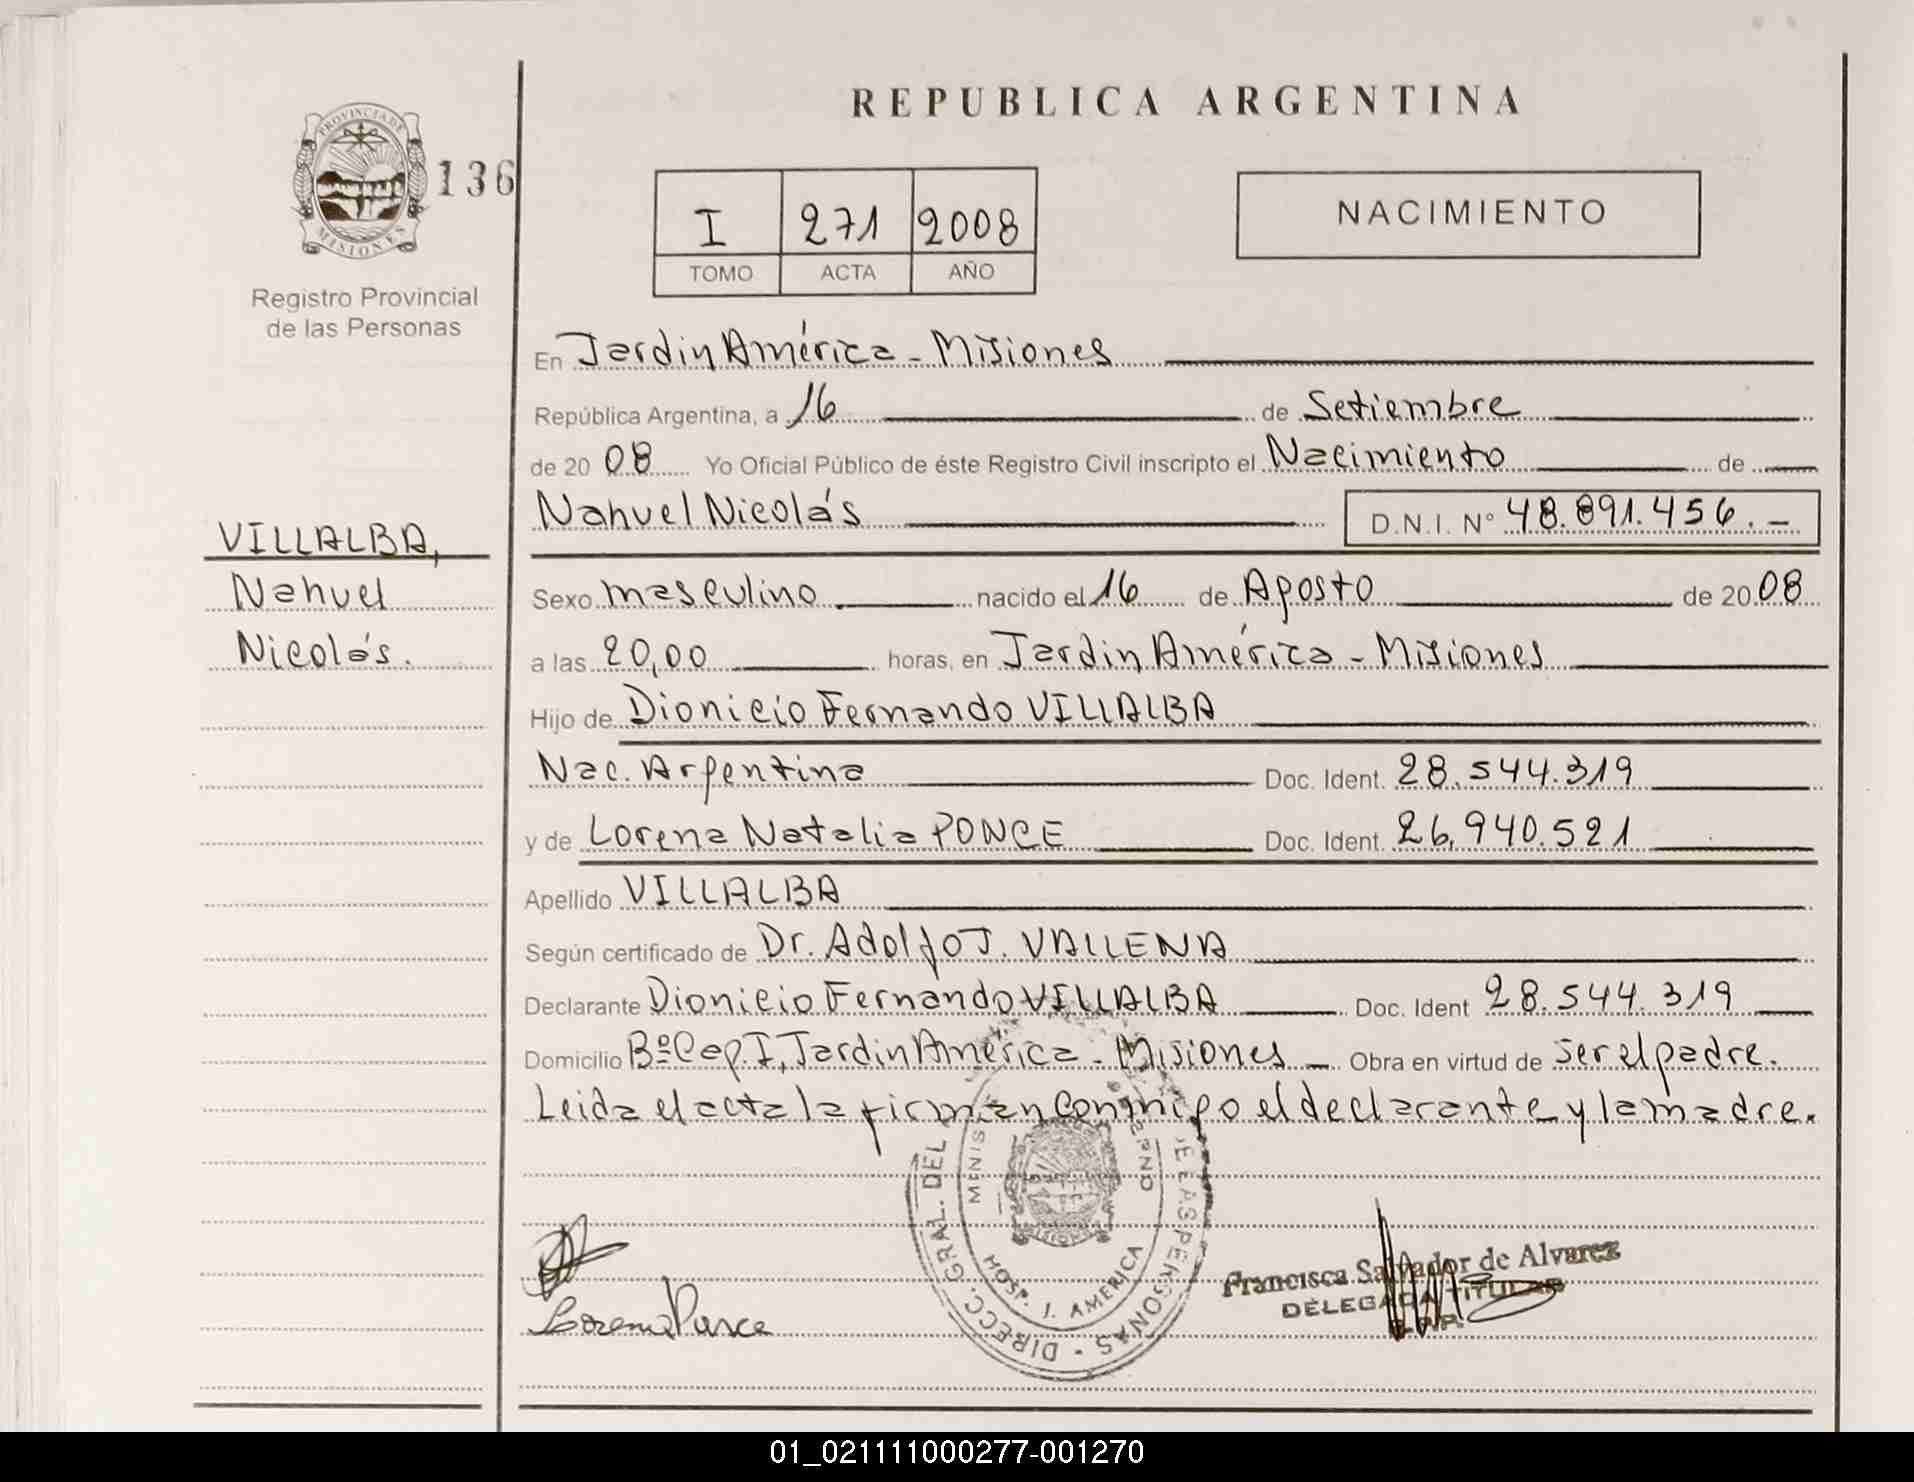 REPUBLICA ARGENTINA
PROVINCIA DE
MISIONES
136
Registro Provincial
de las Personas
I 271 2008
TOMO ACTA AÑO
NACIMIENTO
En Jardin América - Misiones
República Argentina, a 16 de Setiembre
de 20 08 Yo Oficial Público de éste Registro Civil inscripto el Nacimiento de
Nahuel Nicolás D.N.I. Nº 48.891.456.-
VILLALBA,
Nahuel
Nicolás.
Sexo masculino nacido el 16 de Agosto de 20 08
a las 20,00 horas, en Jardin América - Misiones
Hijo de Dionicio Fernando VILLALBA
Nac. Argentina Doc. Ident. 28.544.319
y de Lorena Natalia PONCE Doc. Ident. 26.940.521
Apellido VILLALBA
Según certificado de Dr. Adolfo J. VALLENA
Declarante Dionicio Fernando VILLALBA Doc. Ident 28.544.319
Domicilio Bº Cep. I, Jardin América - Misiones - Obra en virtud de ser el padre.
Leida el acta la firman conmigo el declarante y la madre.
DIRECC. GRAL. DEL DE LAS PERSONAS
HOSP. J. AMERICA
MISIONES
Lorena Ponce
Francisca Salvador de Alvarez
DELEGADA TITULAR
01_021111000277-001270